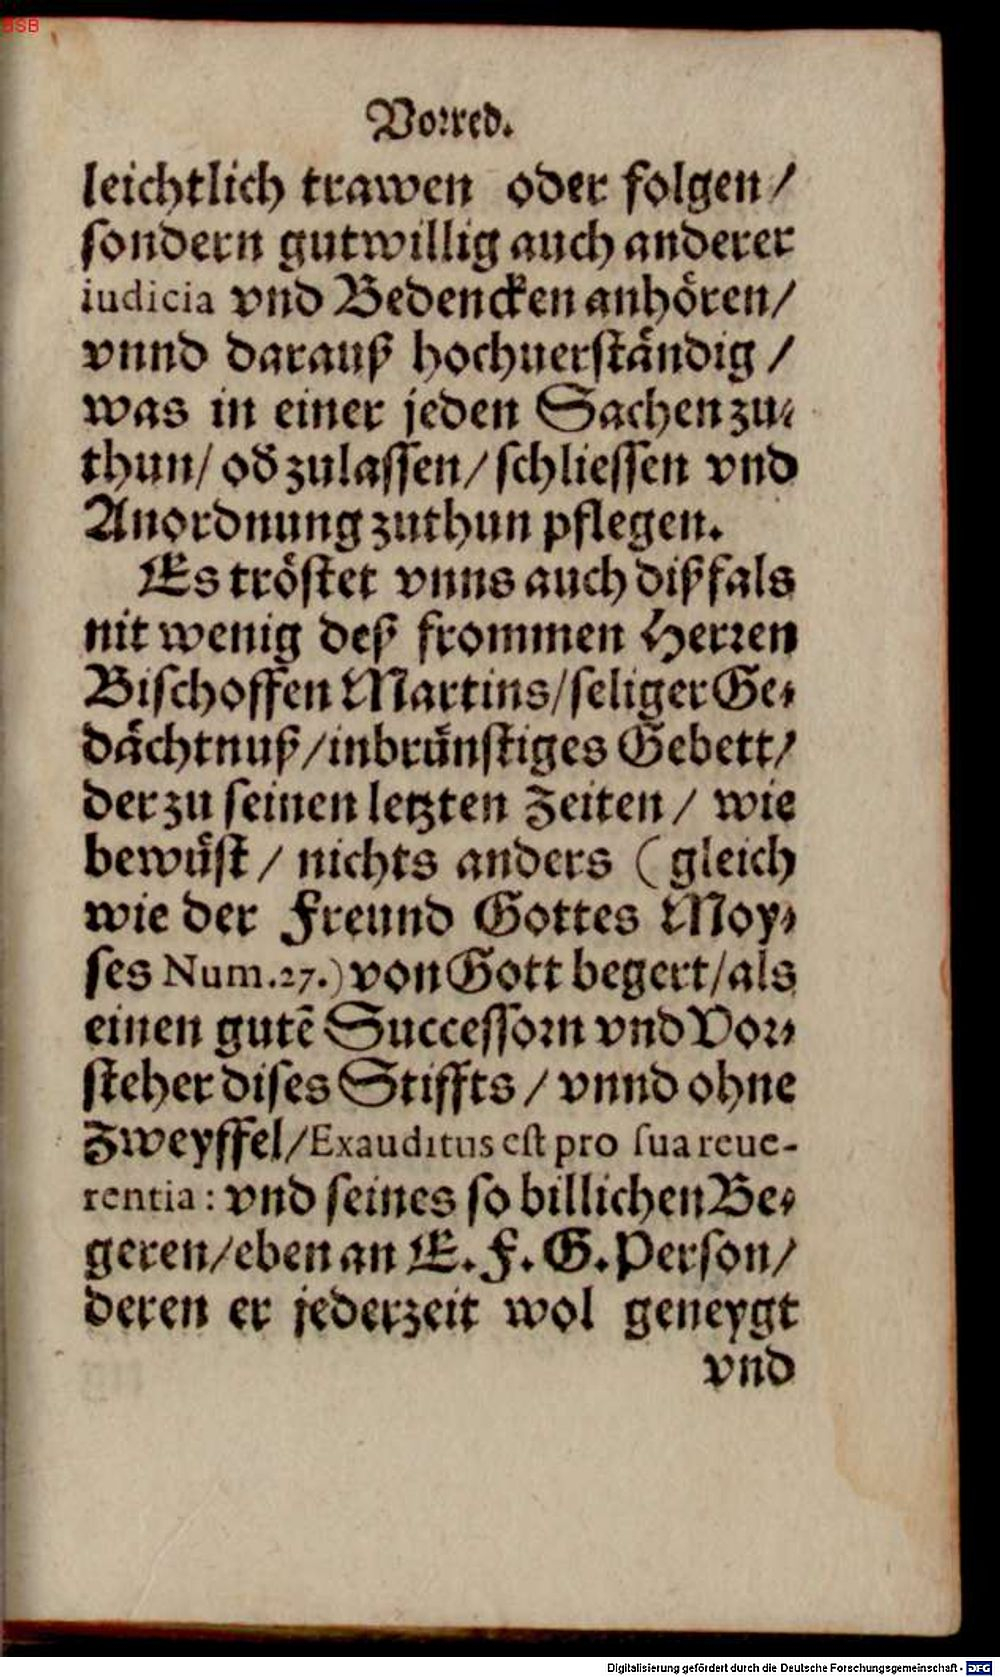 BSB
Vorred.
leichtlich trawen oder folgen/
sondern gutwillig auch anderer
iudicia vnd Bedencken anhören/
vnnd darauß hochuerständig /
was in einer jeden Sachen zu⸗
thun/ od̕ zulassen/ schliessen vnd
Anordnung zuthun pflegen.
Es tröstet vnns auch dißfals
nit wenig deß frommen Herren
Bischoffen Martins/seliger Ge⸗
dächtnuß/inbrünstiges Gebett/
der zu seinen letzten Zeiten / wie
bewüst / nichts anders (gleich
wie der Freund Gottes Moy⸗
ses Num.27.) von Gott begert/als
einen gutē Successorn vnd Vor⸗
steher dises Stiffts / vnnd ohne
Zweyffel/Exauditus est pro sua reue-
rentia: vnd seines so billichen Be⸗
geren/eben an E. F. G. Person/
deren er jederzeit wol geneygt
vnd
Digitalisierung gefördert durch die Deutsche Forschungsgemeinschaft - DFG